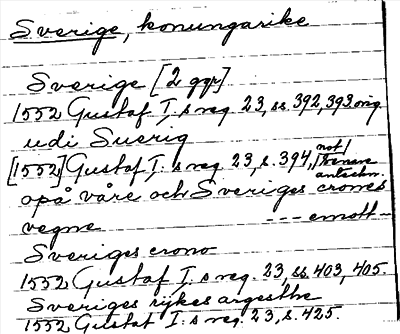 Sverige, konungarike
Sverige [2 ggr]
1552 Gustaf I:s reg. 23, ss. 392, 393 orig.
udi Suerig
[1552] Gustaf I:s reg. 23, s. 394, not/ senare anteckn.
opå våre och Sveriges crones
vegne --- emott -
Sveriges crono
1552 Gustaf I:s reg. 23, ss. 403, 405.
Sveriges rykes argesthe
1552 Gustaf I:s reg. 23, s. 425.